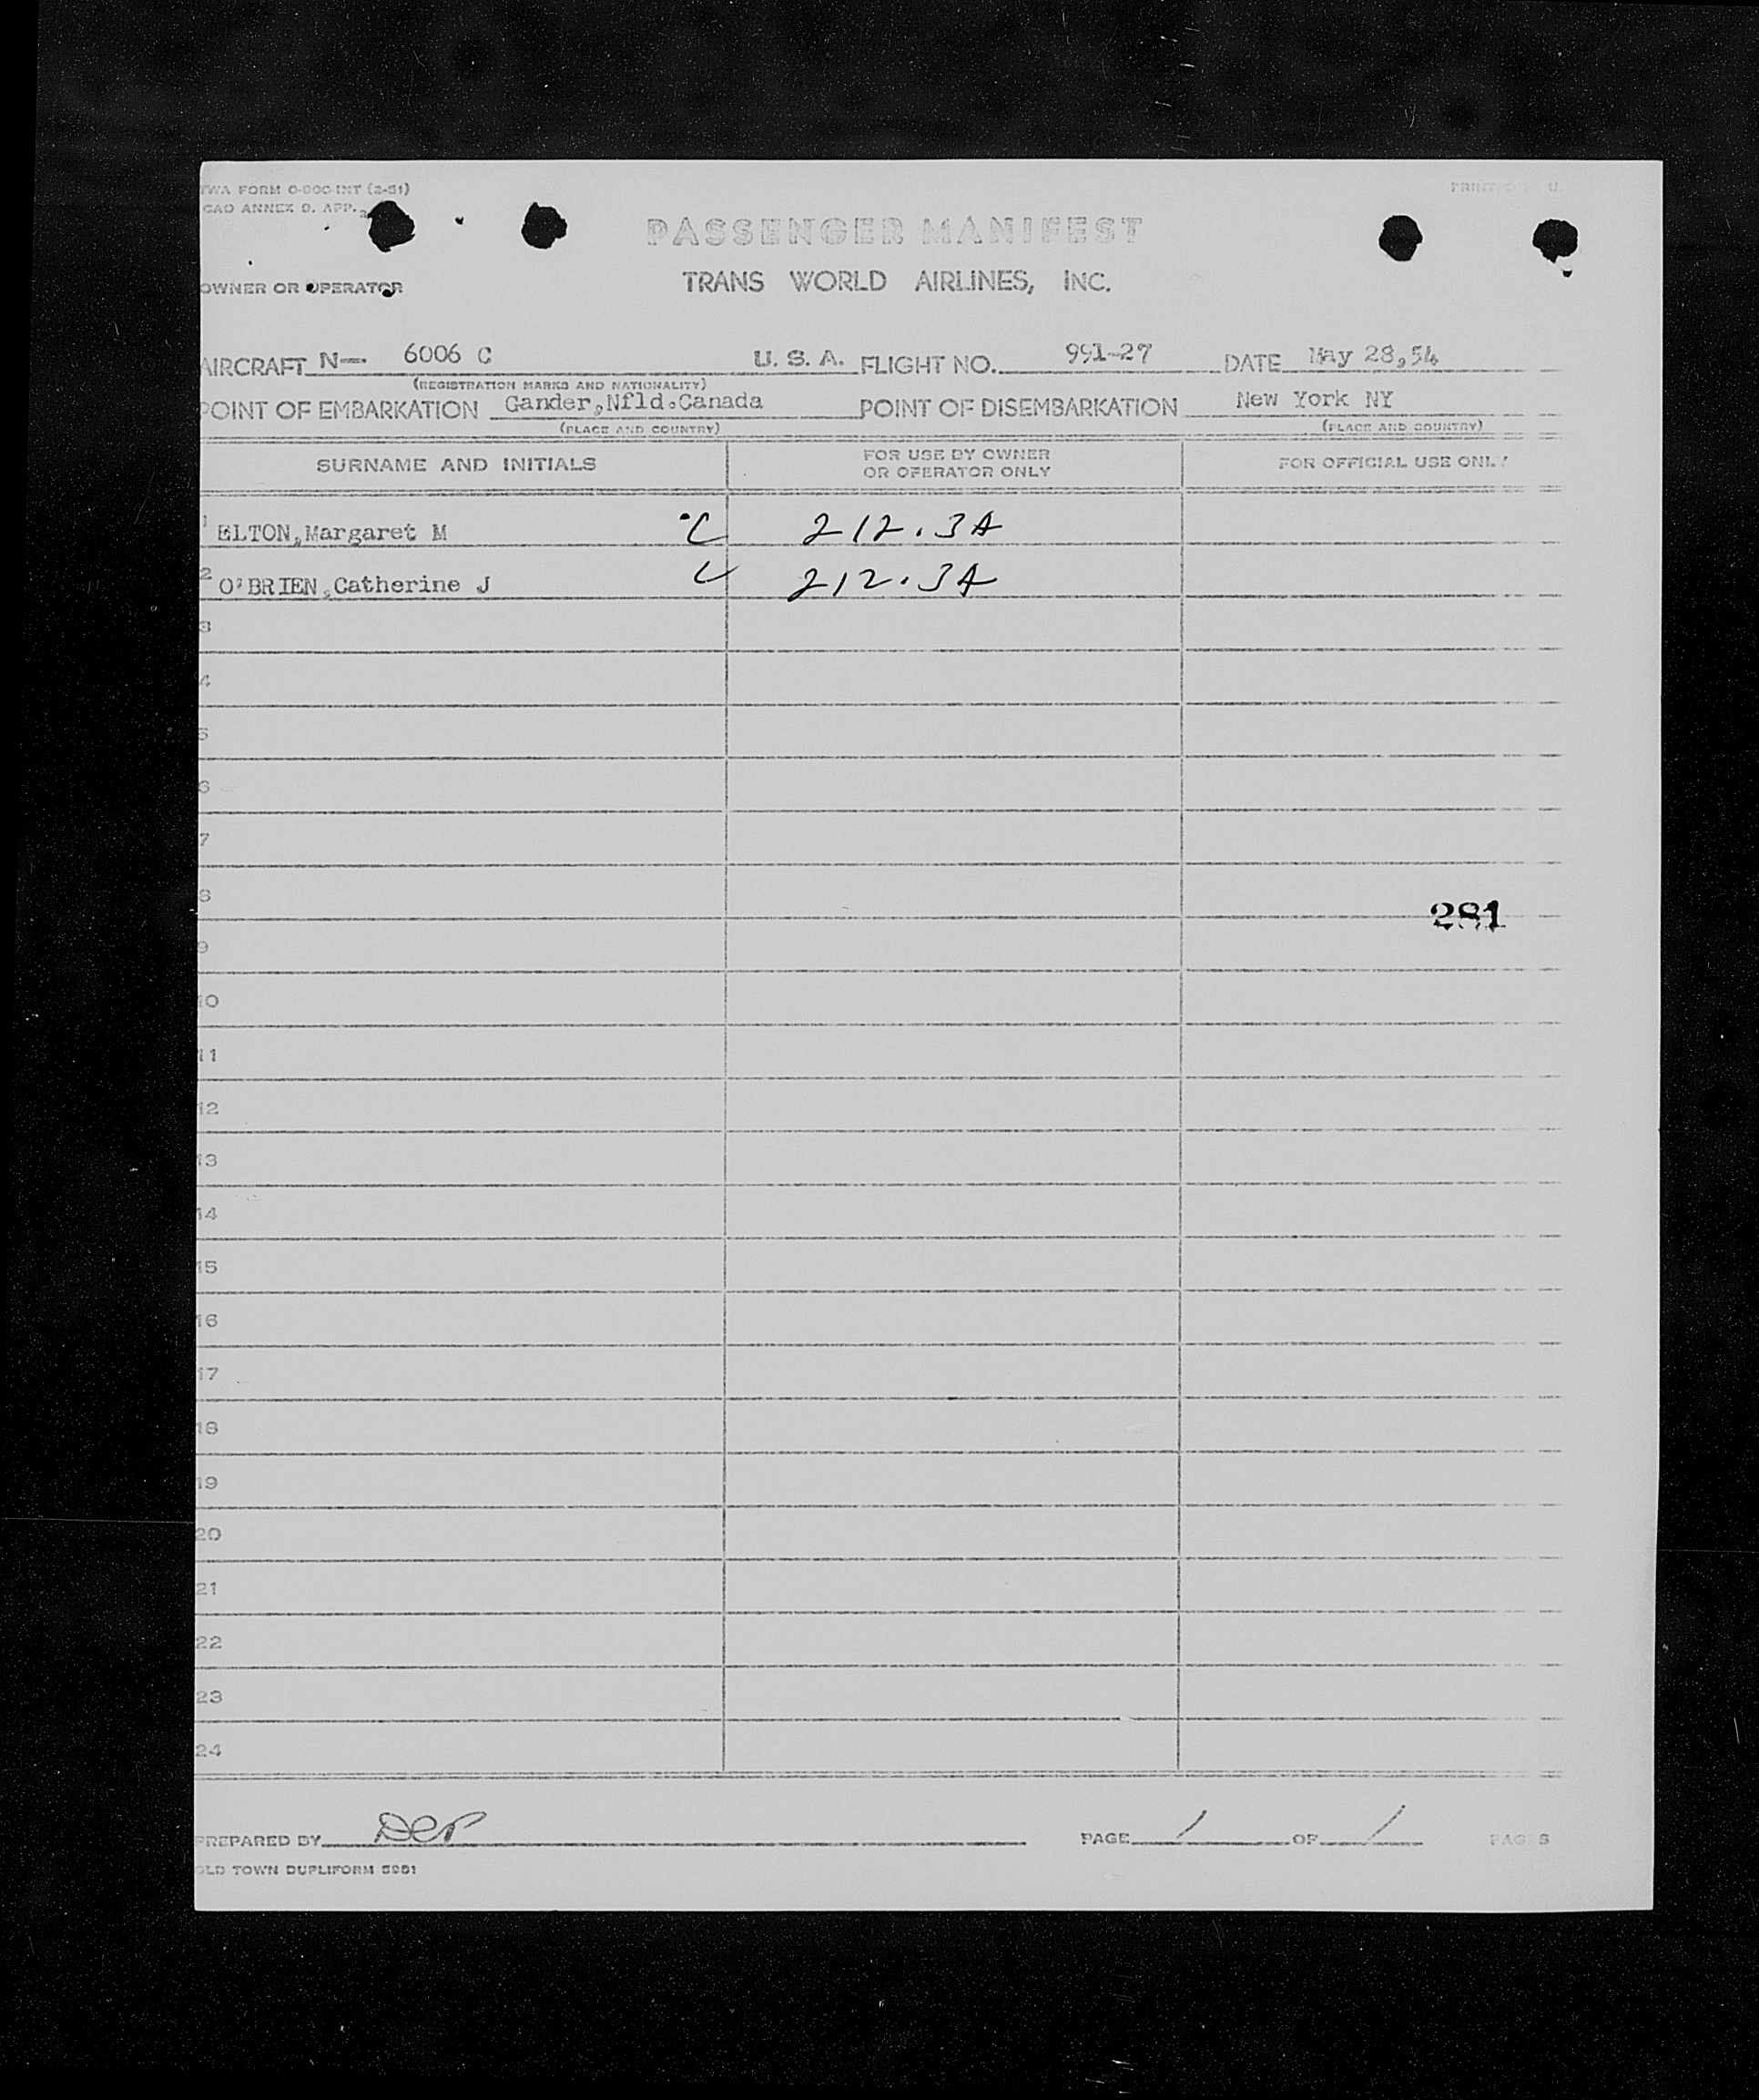 TWA FORM O-900-INT (2-51)
CAO ANNEX D. APP. 2
PASSENGER MANIFEST
OWNER OR OPERATOR TRANS WORLD AIRLINES, INC.
AIRCRAFT N— 6006 C U. S. A. FLIGHT NO. 991-27 DATE May 28,54
(REGISTRATION MARKS AND NATIONALITY)
POINT OF EMBARKATION Gander,Nfld.Canada POINT OF DISEMBARKATION New York NY
(PLACE AND COUNTRY) (PLACE AND COUNTRY)
SURNAME AND INITIALS FOR USE BY OWNER OR OPERATOR ONLY FOR OFFICIAL USE ONLY
1 ELTON,Margaret M 212.3A
2 O'BRIEN,Catherine J 212.3A
3
4
5
6
7
8
281
9
10
11
12
13
14
15
16
17
18
19
20
21
22
23
24
PREPARED BY PAGE 1 OF 1 PAGES
OLD TOWN DUPLIFORM 5951